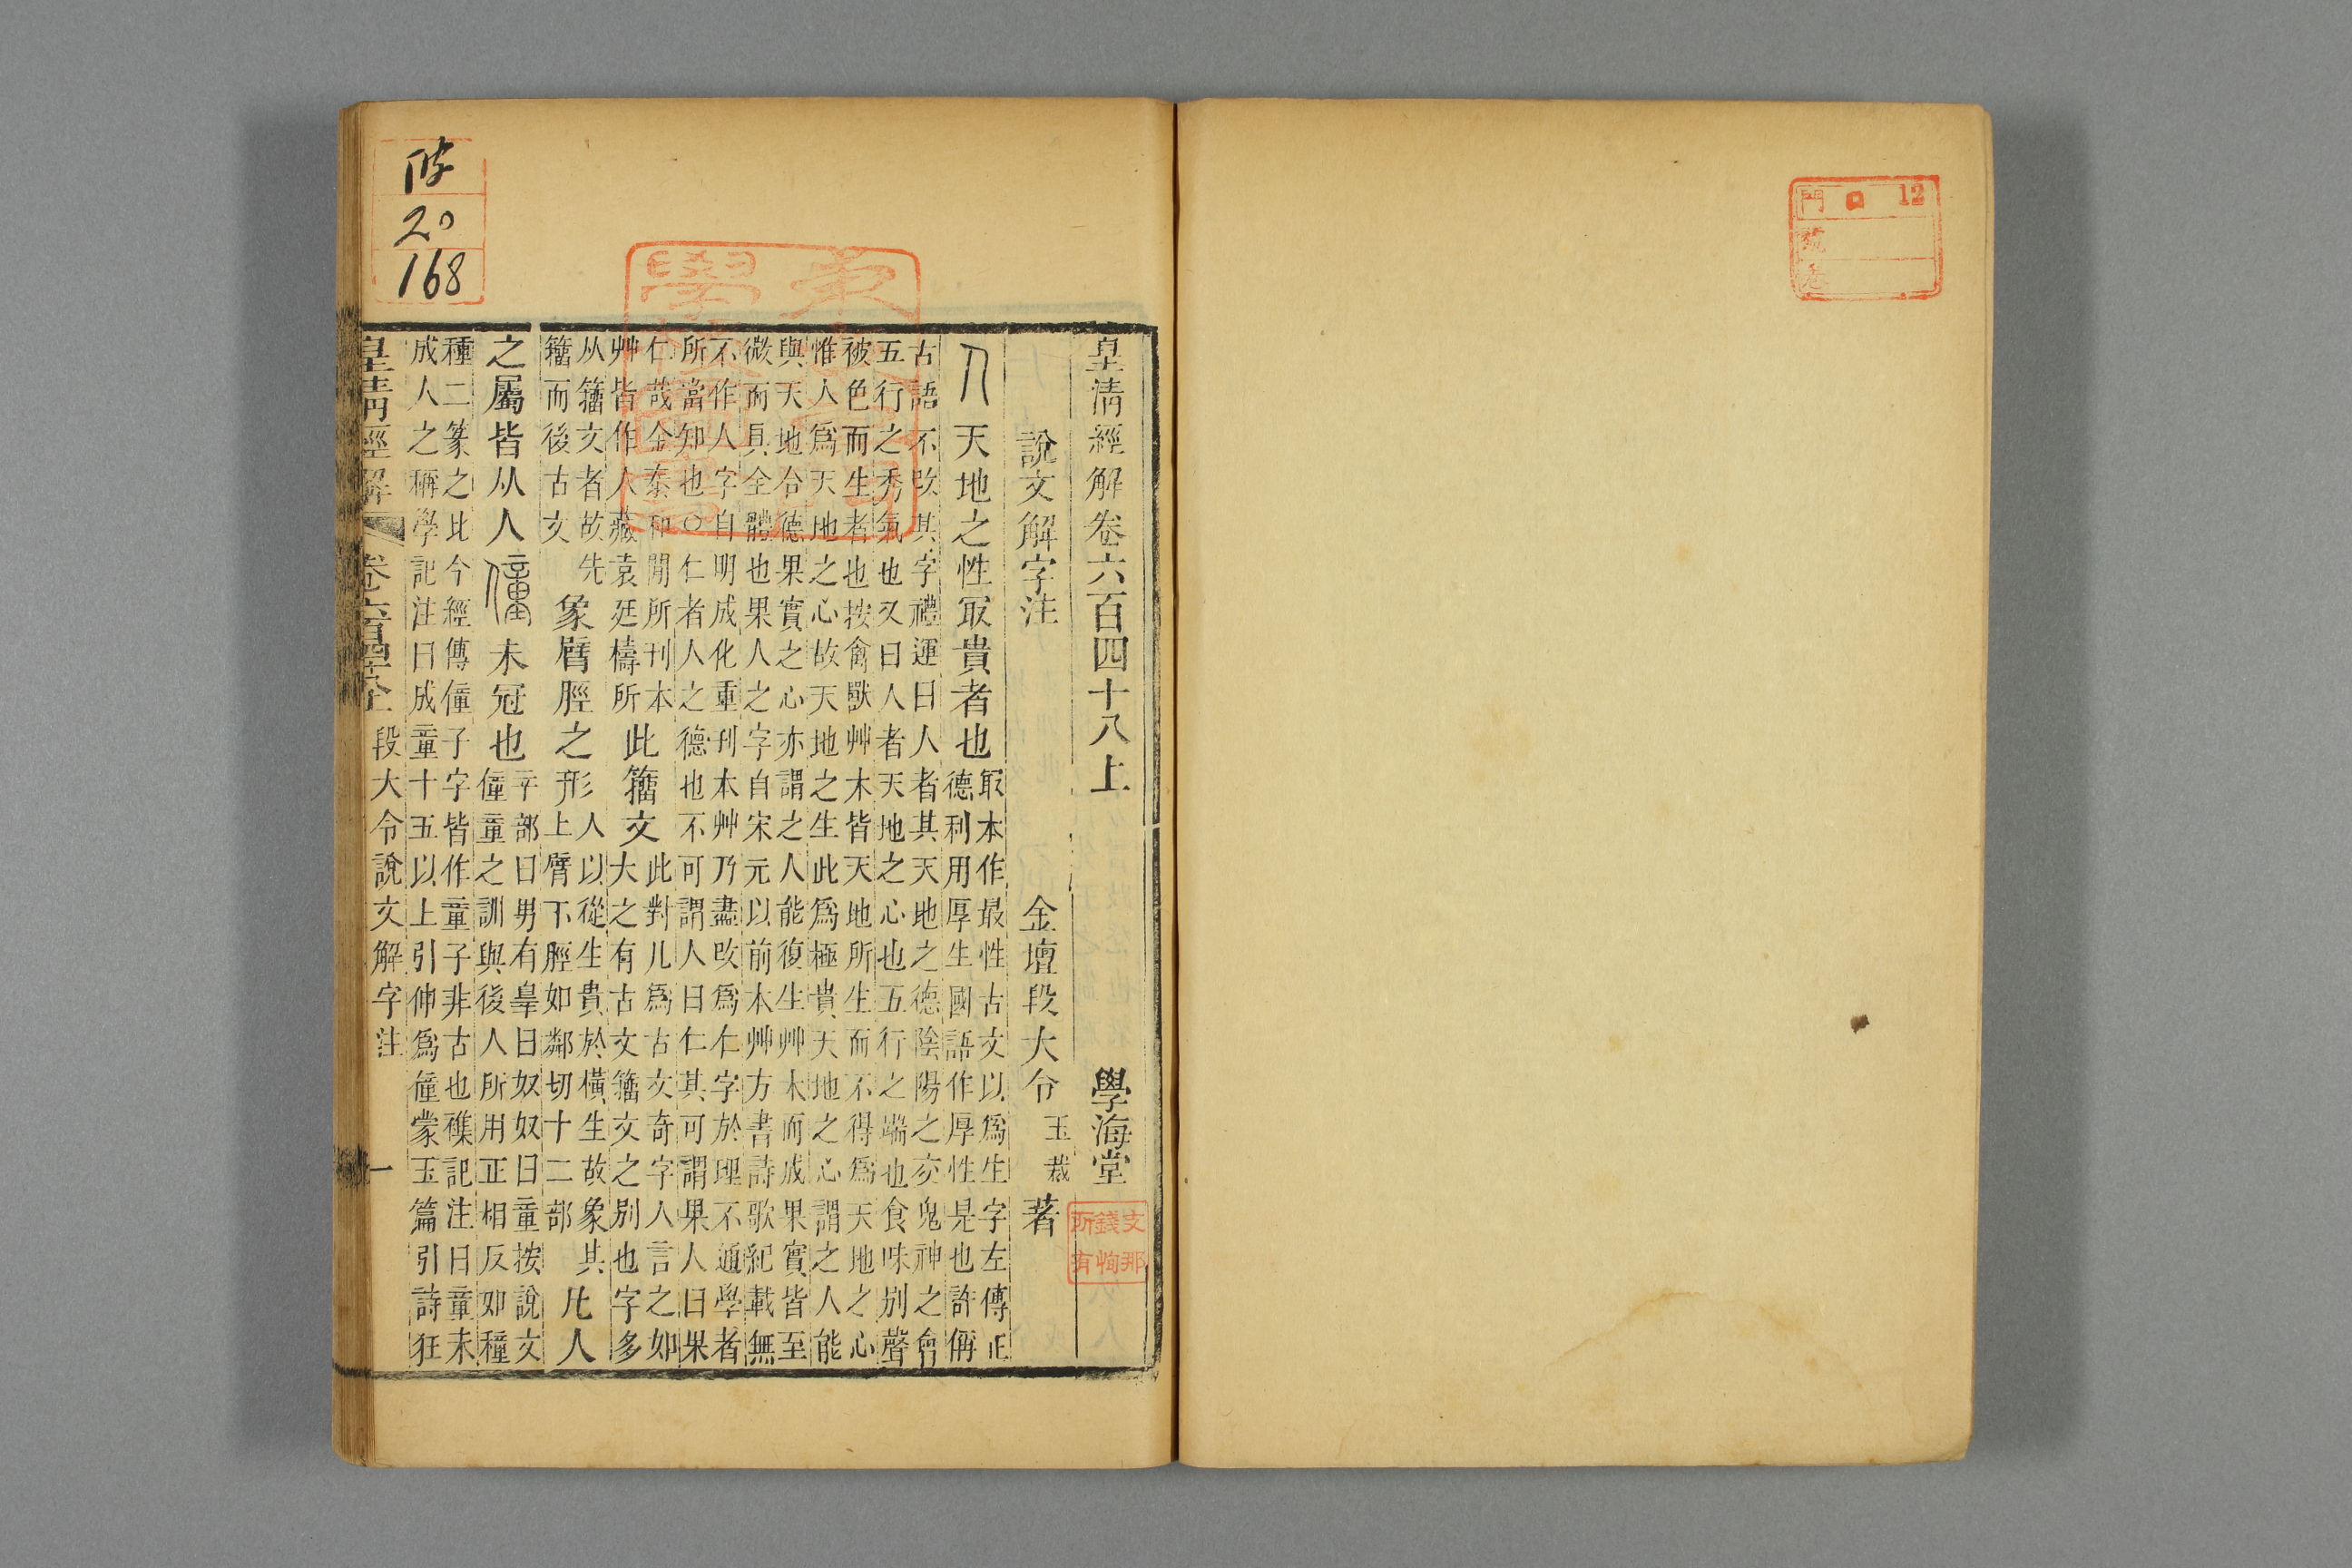 門 12
號
卷
皇清經解卷六百四十八上 學海堂
支那
錢恂
所有
說文解字注 金壇段大令玉裁著
人 天地之性冣貴者也
冣本作最性古文以爲生字左傳正
德利用厚生國語作厚性是也許偁
古語不改其字禮運曰人者其天地之德陰陽之交鬼神之會
五行之秀氣也又曰人者天地之心也五行之端也食味別聲
被色而生者也按禽獸艸木皆天地所生而不得爲天地之心
惟人爲天地之心故天地之生此爲極貴天地之心謂之人能
與天地合德果實之心亦謂之人能復生艸木而成果實皆至
微而具全體也果人之字自宋元以前本艸方書詩歌紀載無
不作人字自明成化重刊本艸乃盡改爲仁字於理不通學者
所當知也〇仁者人之德也不可謂人曰仁其可謂果人曰果
仁哉金泰和閒所刊本
艸皆作人藏袁廷檮所
此籒文
此對儿爲古文奇字人言之如
大之有古文籒文之別也字多
从籒文者故先
籒而後古文
象臂脛之形
人以從生貴於橫生故象其
上臂下脛如鄰切十二部
凡人
之屬皆从人 僮 未冠也
䇂部曰男有辠曰奴奴曰童按說文
僮童之訓與後人所用正相反如穜
種二篆之比今經傳僮子字皆作童子非古也襍記注曰童未
成人之稱學記注曰成童十五以上引伸爲僮蒙玉篇引詩狂
皇清經解 卷六百四十八上 段大令說文解字注 一
20
168